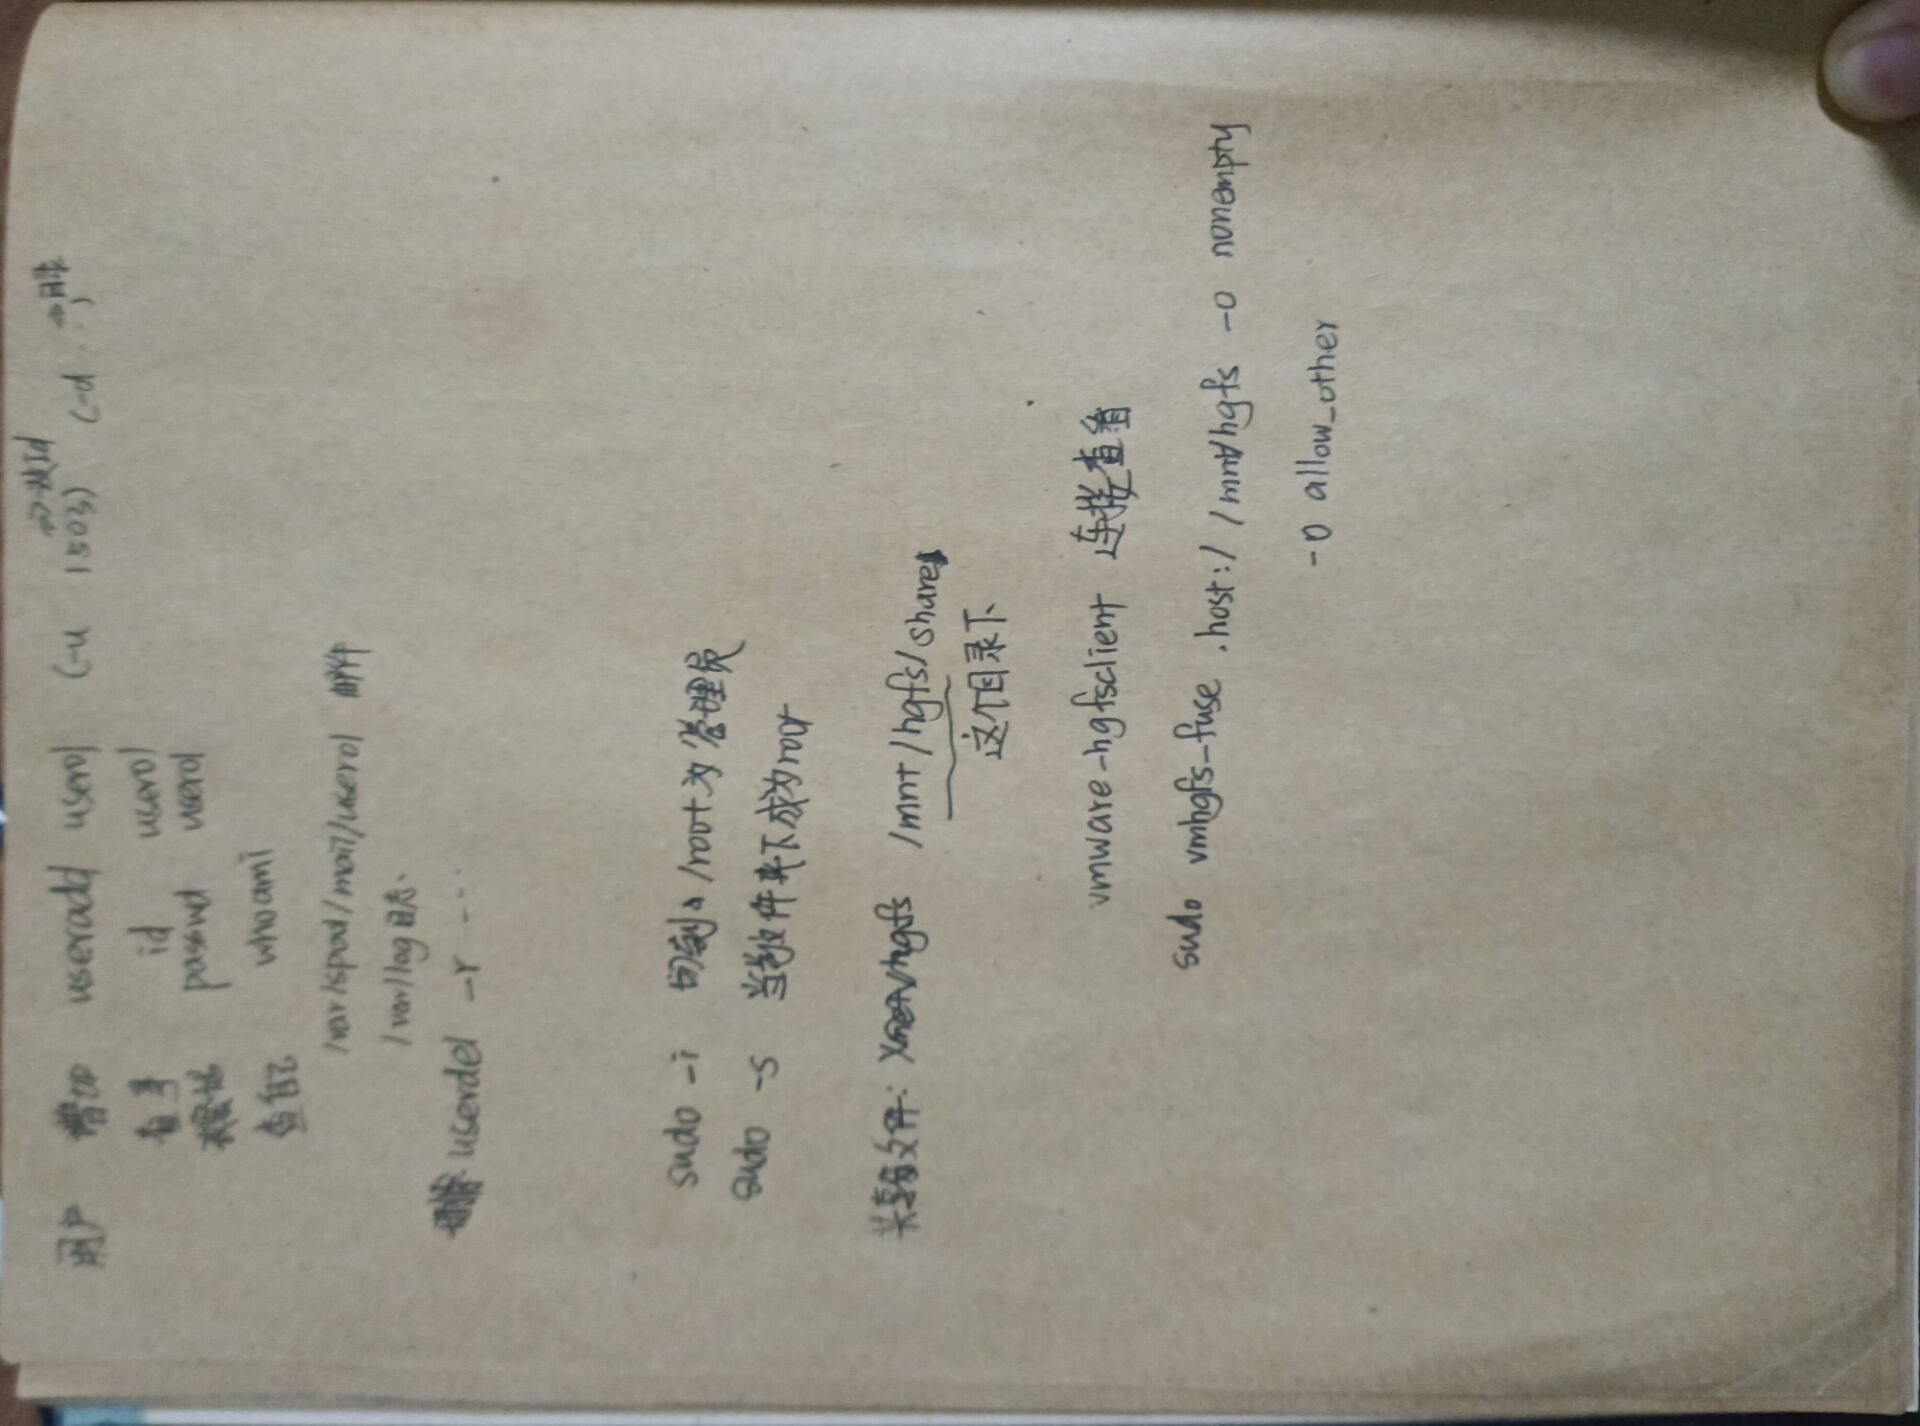 用户 增加 useradd user01 (-u 1503) (-d ...)
⇒改Id ⇒目录
查寻 id user01
改密码 passwd user01
查自己 whoami
/var/spool/mail/user01 邮件
/var/log 日志.
删除 userdel -r ...
sudo -i 切到 /root 为管理员
sudo -s 当前文件夹下成为root
共享文件: /mnt/hgfs/share
这个目录下
vmware-hgfsclient 连接查看
sudo vmhgfs-fuse .host:/ /mnt/hgfs -o nonempty
-o allow_other